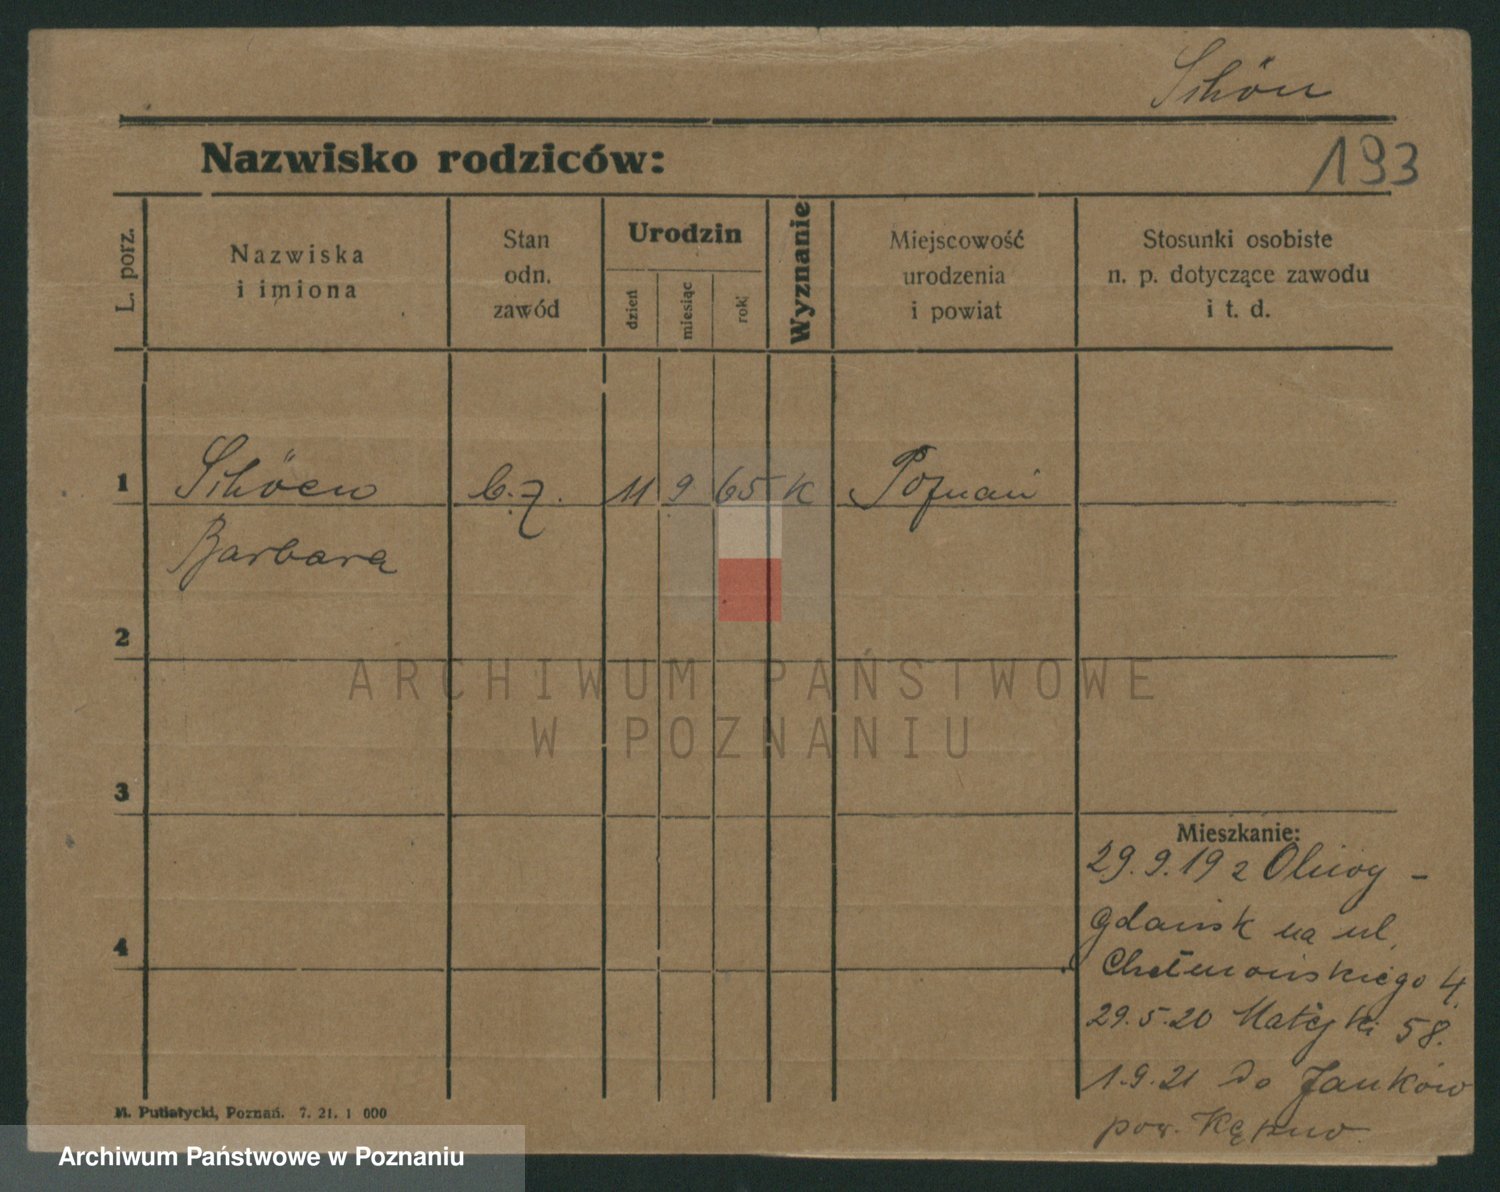 Schön
193
Nazwisko rodziców:
L. porz.
Nazwiska
i imiona
Stan
odn.
zawód
Urodzin
dzień
miesiąc
rok
Wyznanie
Miejscowość
urodzenia
i powiat
Stosunki osobiste
n. p. dotyczące zawodu
i t. d.
1 Schöen b.z. 11 9 65 K Poznań
Barbara
2
ARCHIWUM PAŃSTWOWE
W POZNANIU
3
Mieszkanie:
29.9.19 z Oliwy -
Gdańsk na ul.
4
Chełmońskiego 4.
29.5.20 Matejki 58.
1.9.21 do Janków
pow. Kępno
M. Putiatycki, Poznań. 7. 21. 1 000
Archiwum Państwowe w Poznaniu